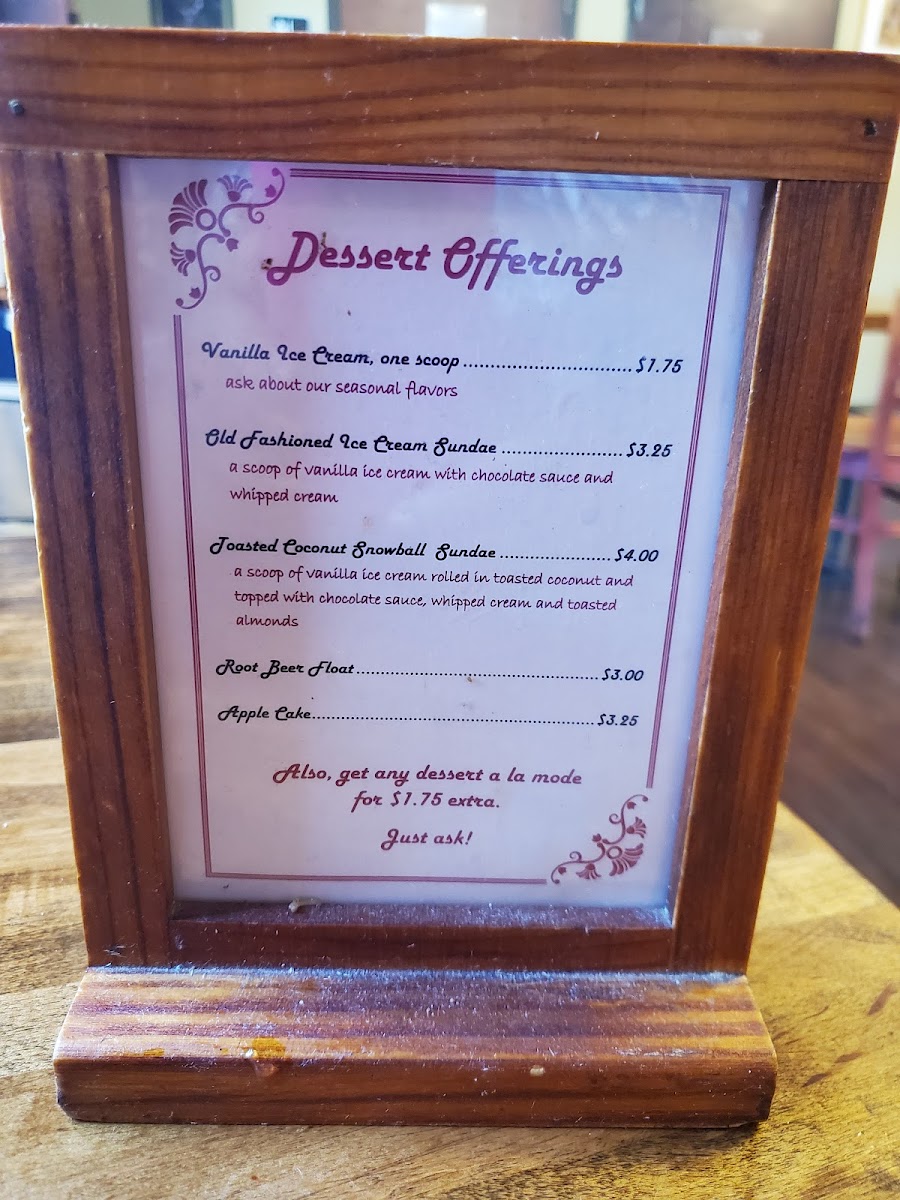 Dessert Offerings
Vanilla Ice Cream, one scoop ................................ $1.75
ask about our seasonal flavors
Old Fashioned Ice Cream Sundae ....................... $3.25
a scoop of vanilla ice cream with chocolate sauce and
whipped cream
Toasted Coconut Snowball Sundae ..................... $4.00
a scoop of vanilla ice cream rolled in toasted coconut and
topped with chocolate sauce, whipped cream and toasted
almonds
Root Beer Float .................................................. $3.00
Apple Cake........................................................... $3.25
Also, get any dessert a la mode
for $1.75 extra.
Just ask!